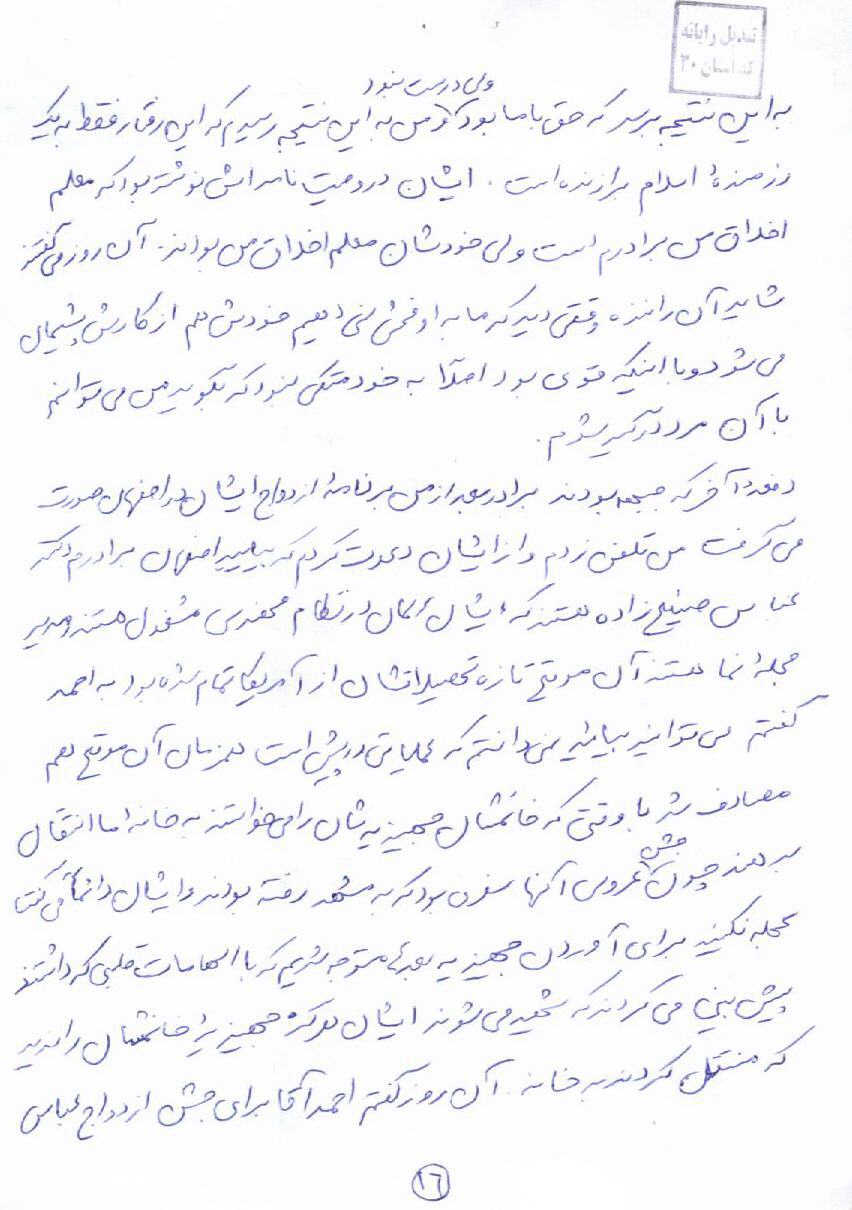 تبدیل رایانه
کد استان ۳۰
ولی درست نبود
به این نتیجه برسد که حق با ما بود و من به این نتیجه رسیدم که این رفتار فقط به یک
رزمندهٔ اسلام برازنده است. ایشان در وصیت نامه اش نوشته بود که معلم
اخلاق من برادرم است ولی خودشان معلم اخلاق من بودند. آن روز می گفتند
شاید آن راننده وقتی دید که ما به او فحش نمی دهیم خودش هم از کارش پشیمان
می شود و با اینکه قوی بود اصلاً به خود متکی نبود که بگوید من می توانم
با آن مرد درگیر بشوم.
دفعه آخر که جبهه بودند برادر بعد از من برنامهٔ ازدواج ایشان در اصفهان صورت
می گرفت من تلفن زدم و از ایشان دعوت کردم که بیایید اصفهان برادرم دکتر
عباس صنیع زاده هستند که ایشان الان در نظام مهندسی مشغول هستند و مدیر
مجلهٔ نما هستند آن موقع تازه تحصیلاتشان از آمریکا تمام شده بود به احمد
گفتم می توانید بیائید نمی دانستم که عملیاتی در پیش است همزمان آن موقع هم
مصادف شد با وقتی که خانمشان جهیزیه شان را می خواستند به خانه اما انتقال
بدهند چون جشن عروسی آنها سفری بود که به مشهد رفته بودند و ایشان دائماً می گفت
عجله نکنید برای آوردن جهیزیه بعدها متوجه شدیم که با الهامات قلبی که داشتند
پیش بینی می کردند که شهید می شوند ایشان هرگز جهیزیهٔ خانمشان را ندید
که منتقل کردند به خانه. آن روز گفتم احمد آقا برای جشن ازدواج عباس
۱۶